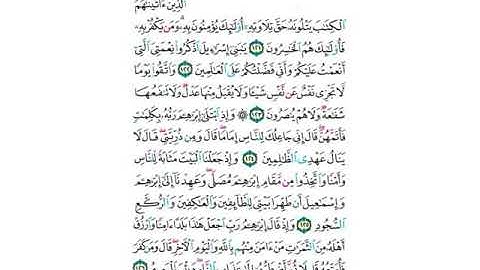 الذين ءاتينهم
الكتب يتلونه حق تلاوته أولئك يؤمنون به ومن يكفر به
فأولئك هم الخسرون ١٢١ يبنى إسرءيل اذكروا نعمتى التى
أنعمت عليكم وأنى فضلتكم على العلمين ١٢٢ واتقوا يوما
لا تجزى نفس عن نفس شيئا ولا يقبل منها عدل ولا تنفعها
شفعة ولا هم ينصرون ١٢٣ ۞ وإذ ابتلى إبرهم ربه بكلمت
فأتمهن قال إنى جاعلك للناس إماما قال ومن ذريتى قال لا
ينال عهدى الظلمين ١٢٤ وإذ جعلنا البيت مثابة للناس
وأمنا واتخذوا من مقام إبرهم مصلى وعهدنا إلى إبرهم
وإسمعيل أن طهرا بيتى للطائفين والعكفين والركع
السجود ١٢٥ وإذ قال إبرهم رب اجعل هذا بلدا ءامنا وارزق
أهله من الثمرت من ءامن منهم بالله واليوم الآخر قال ومن كفر